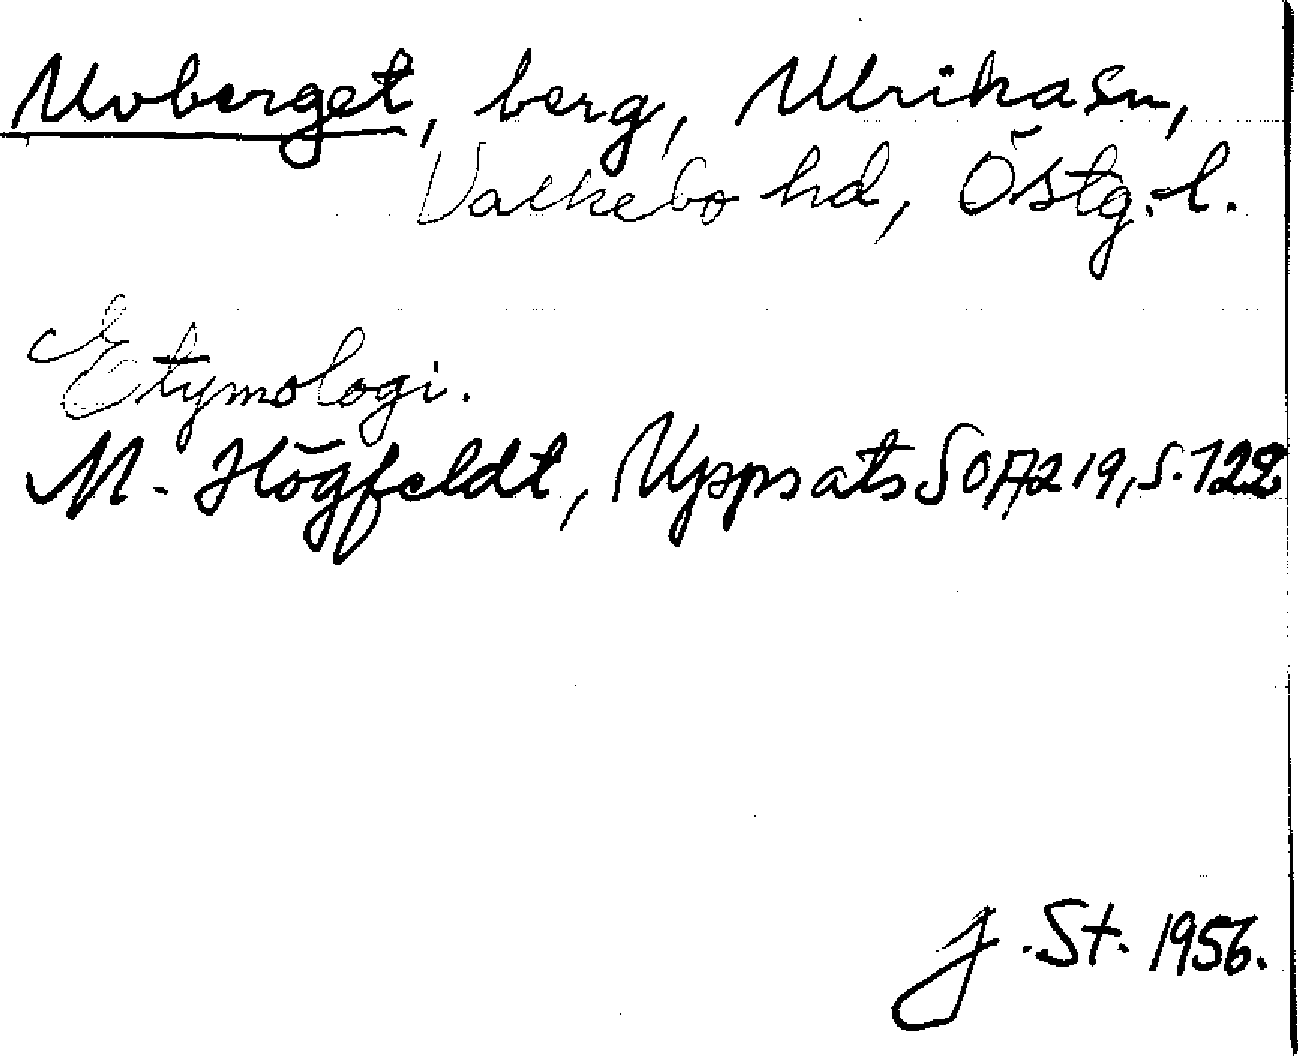 Uvberget, berg, Ulrika sn,
Valkebo hd, Östg.l.
Etymologi.
M. Högfeldt, Uppsats SOA219, s. 122
J. St. 1956.